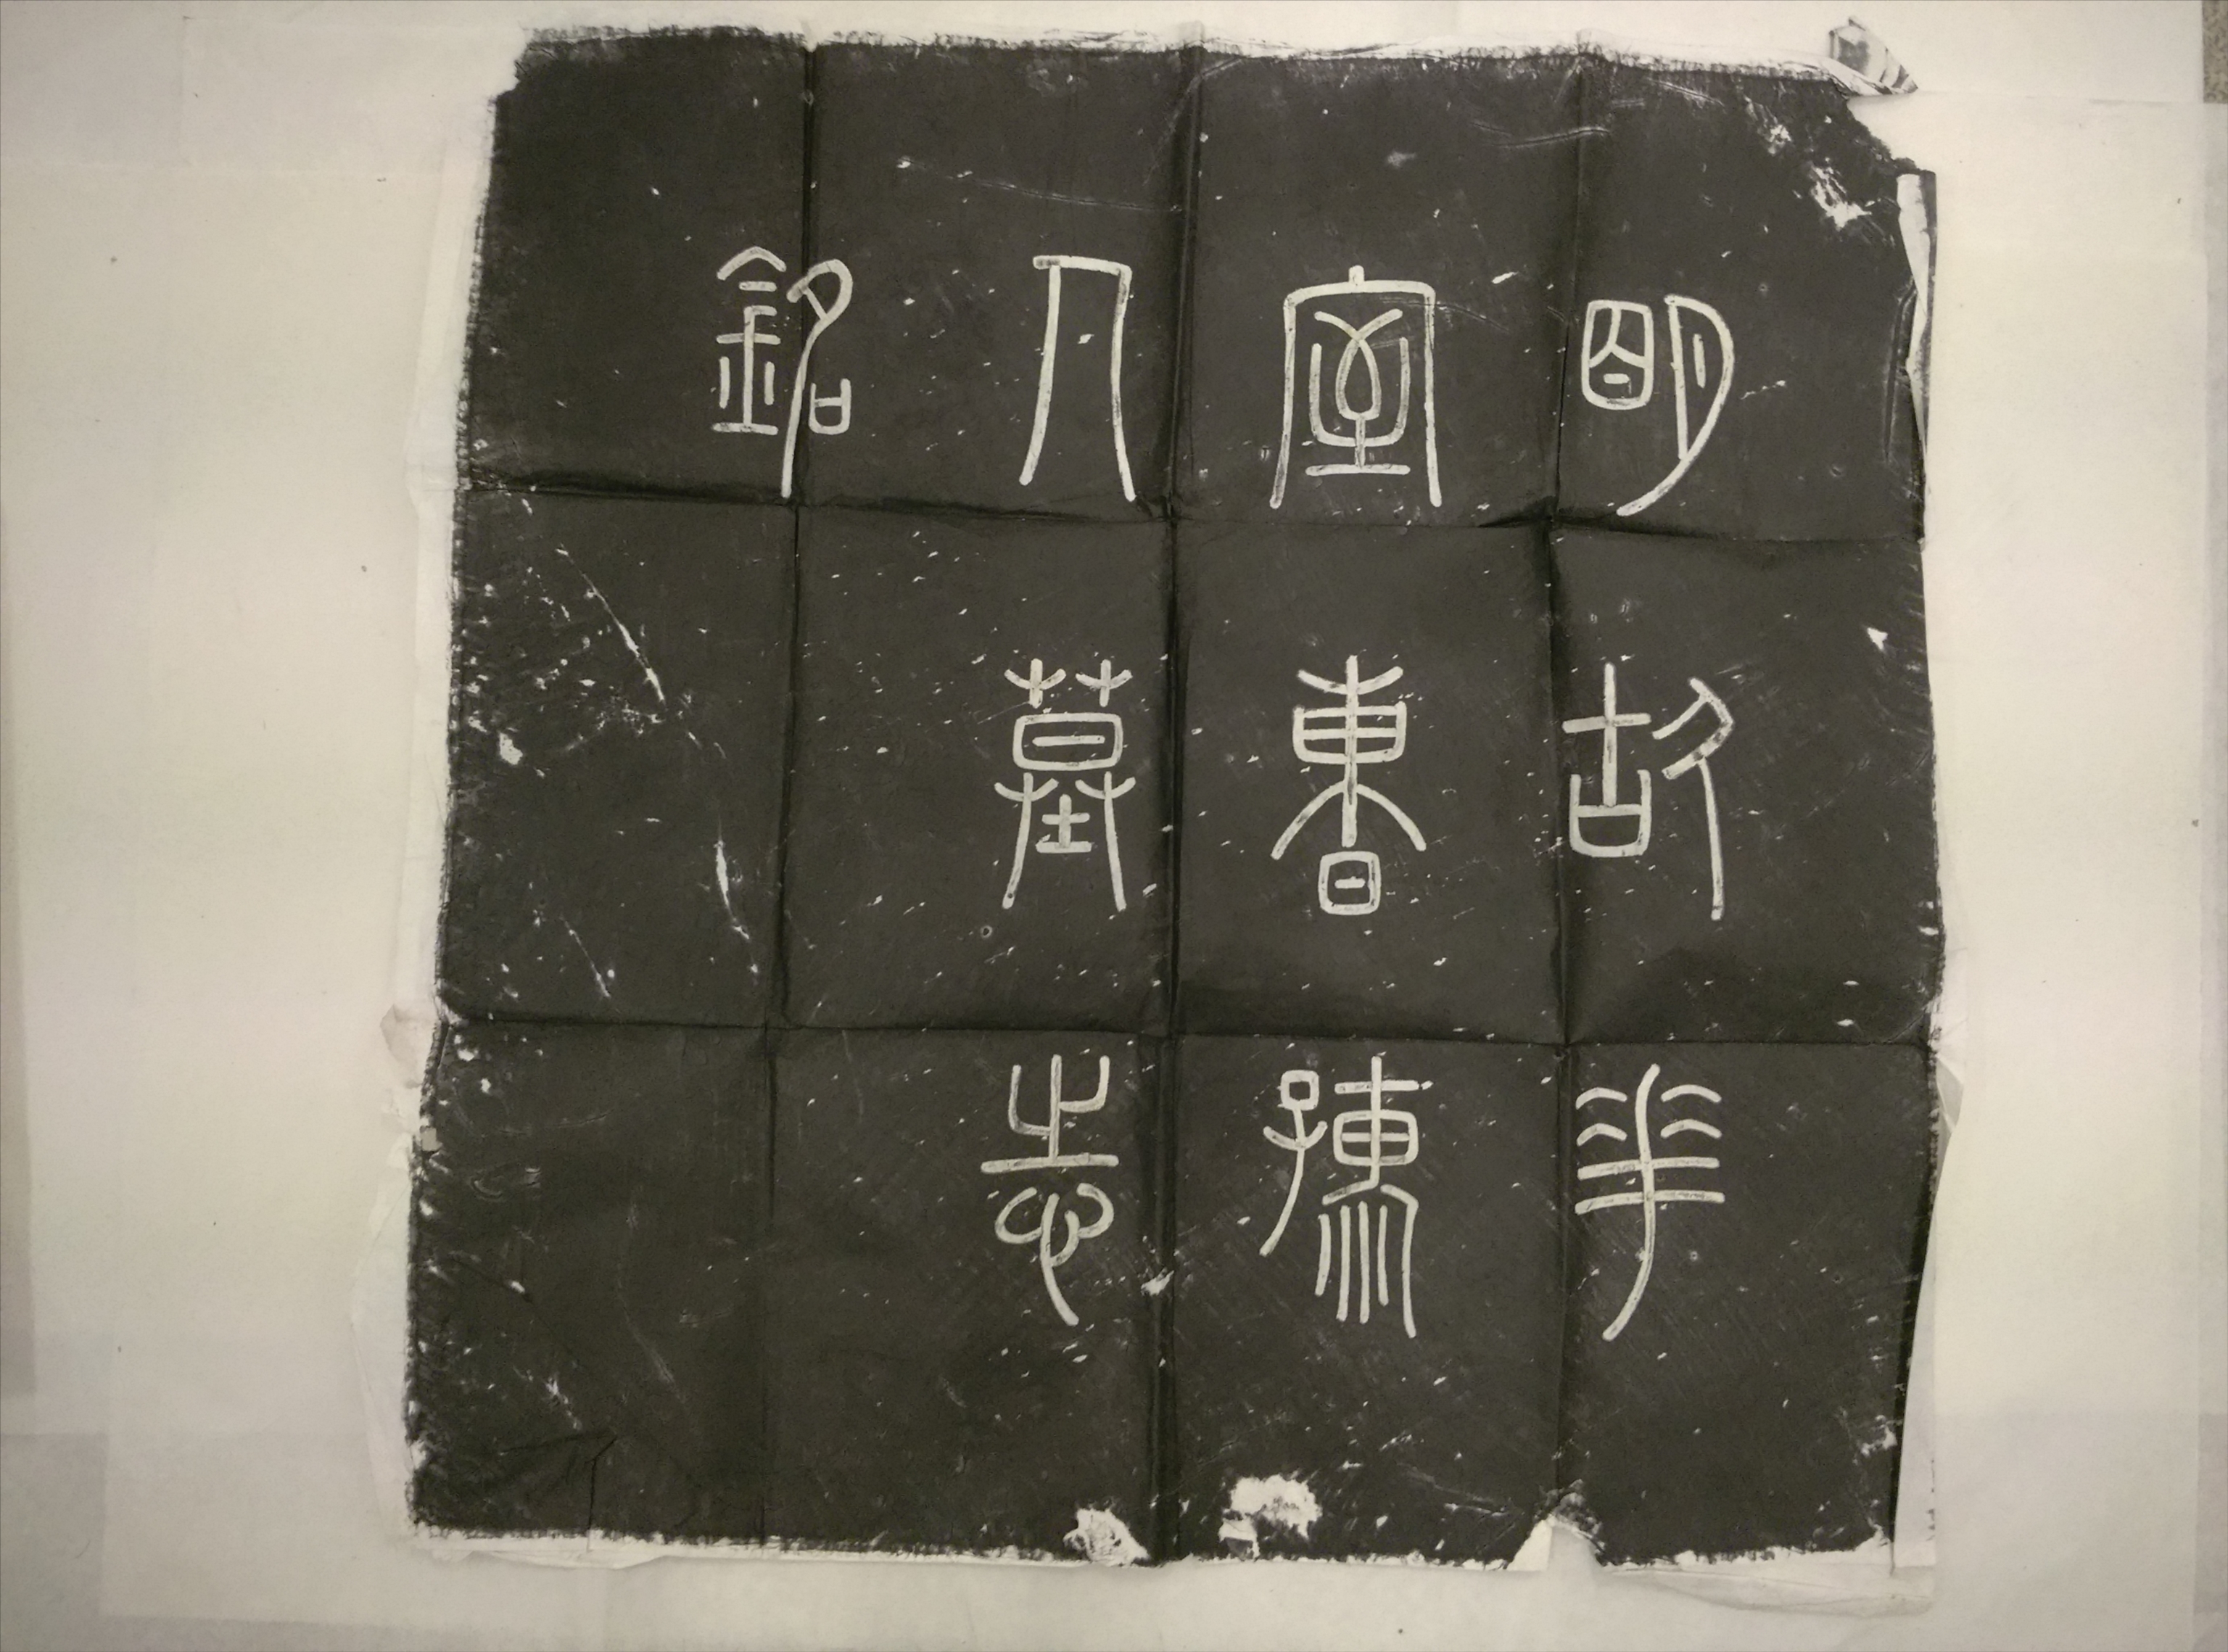 明故華
室曹孺
人墓志
銘